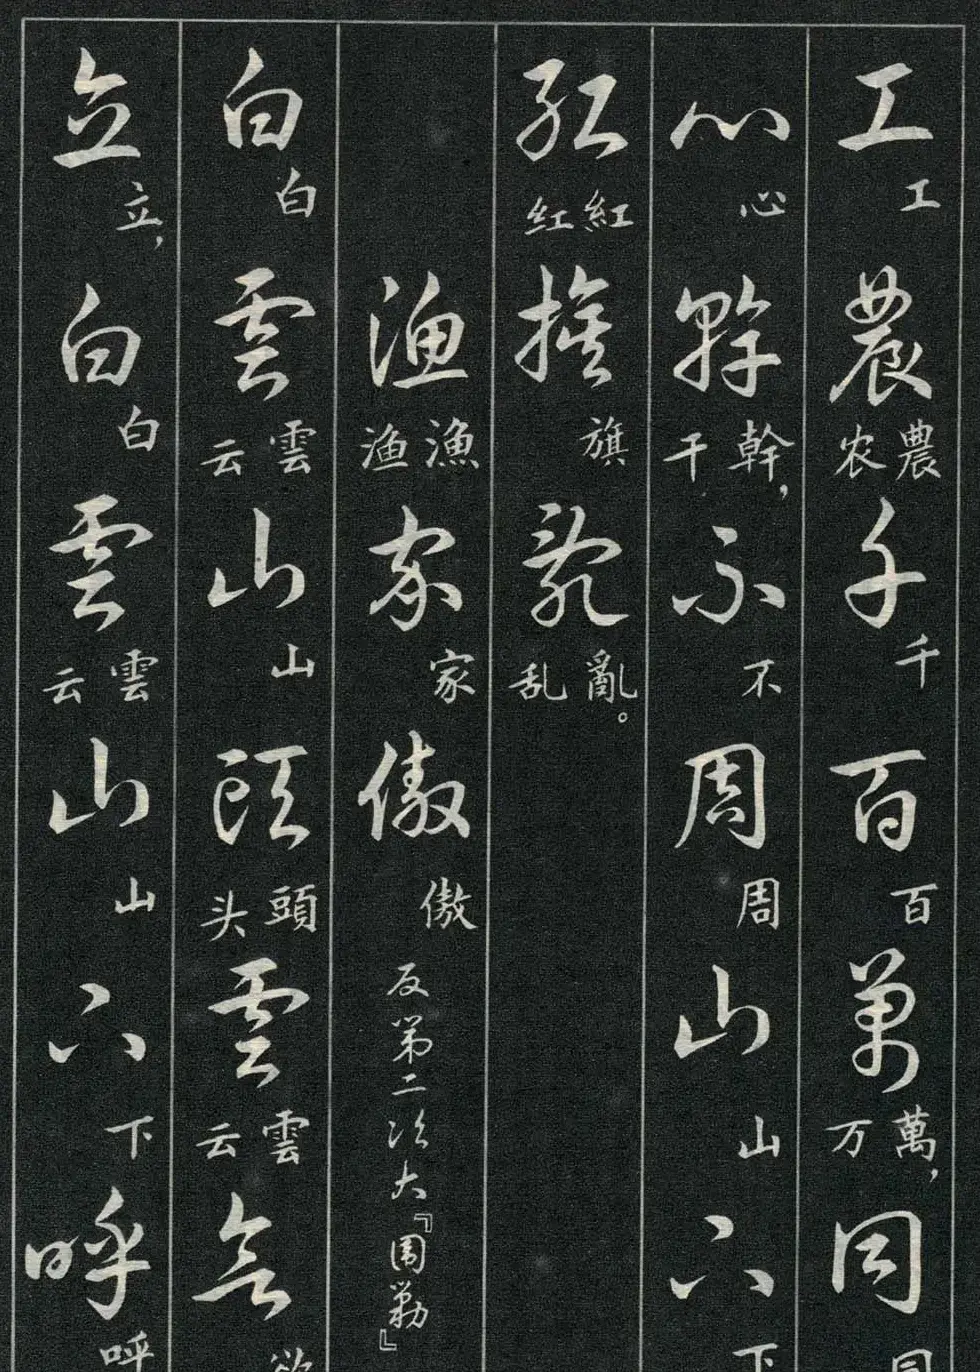 工 工 農 農农 千 千 百 百 萬 萬,万 同 同
心 心 幹 幹,干 不 不 周 周 山 山 下 下
红 紅红 旗 旗 亂 亂。乱
渔 漁渔 家 家 傲 傲 反第二次大『围勦』
白 白 雲 雲云 山 山 頭 頭头 雲 雲云 欲 欲
立 立, 白 白 雲 雲云 山 山 下 下 呼 呼